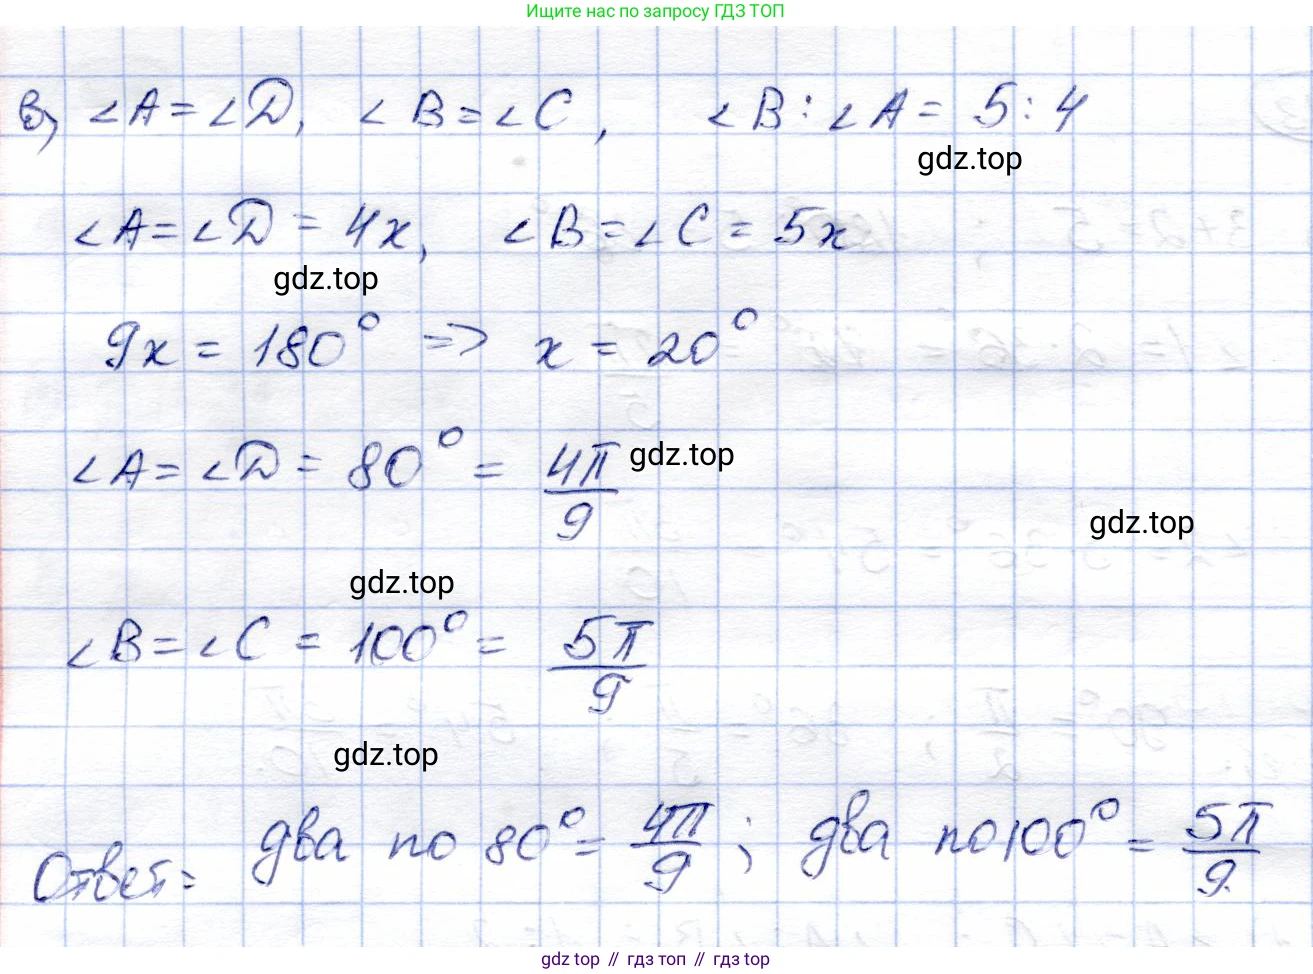 Ищите нас по запросу ГДЗ ТОП
в) ∠A = ∠D, ∠B = ∠C, ∠B : ∠A = 5 : 4
gdz.top
∠A = ∠D = 4x, ∠B = ∠C = 5x
gdz.top
9x = 180° => x = 20°
∠A = ∠D = 80° = 4π/9
gdz.top
gdz.top
gdz.top
∠B = ∠C = 100° = 5π/9
gdz.top
Ответ: два по 80° = 4π/9 ; два по 100° = 5π/9.
gdz.top // гдз топ // гдз.top